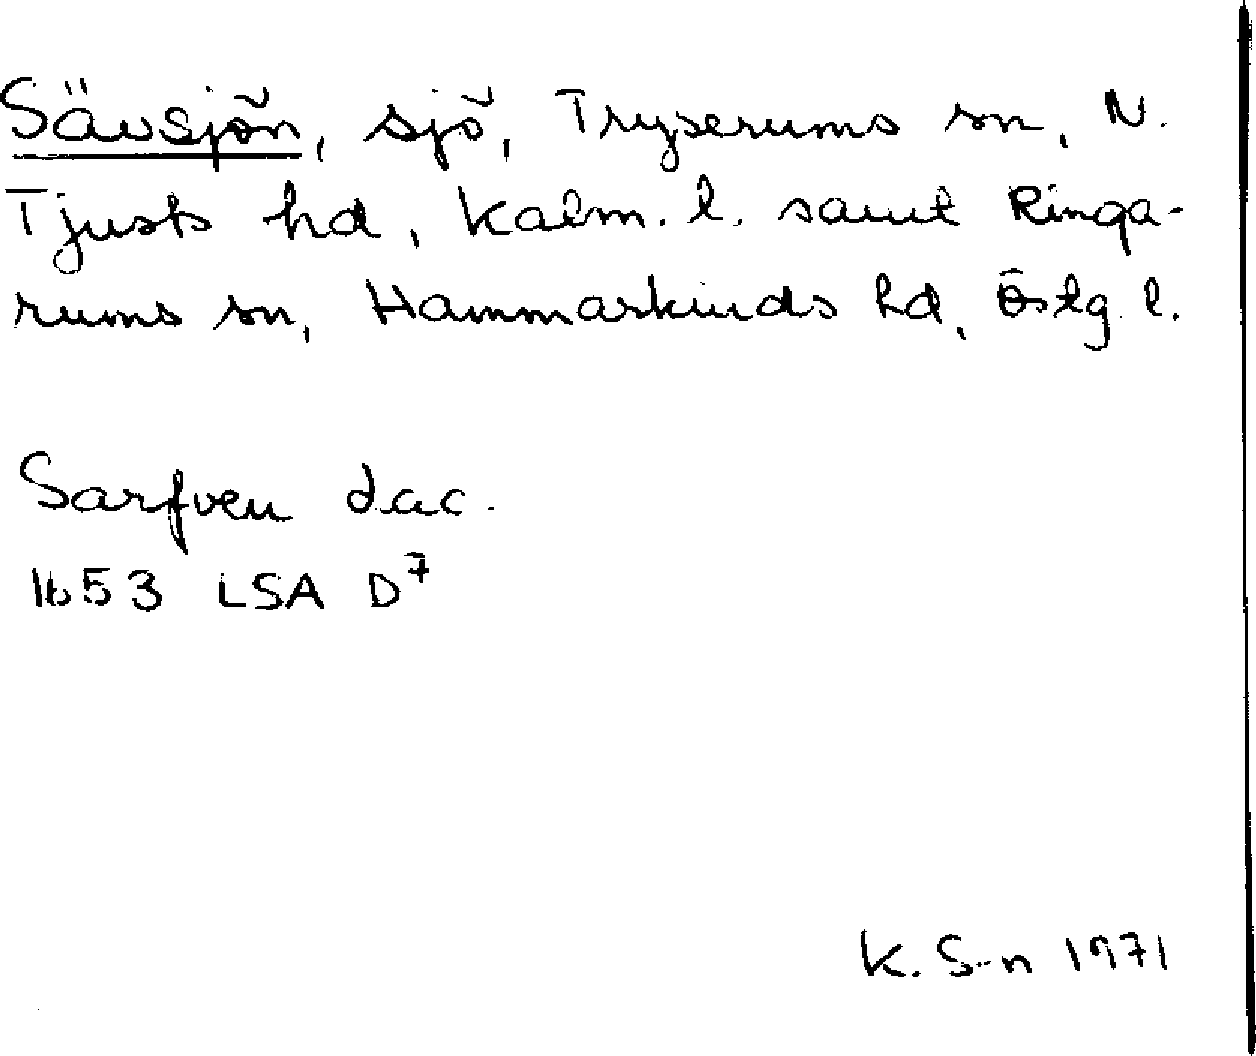 Sävsjön, sjö, Tryserums sn, N.
Tjusts hd, Kalm. l. samt Ringa-
rums sn, Hammarkinds hd, Östg. l.
Sarfven Lac.
1653 LSA D⁷
K. S-n 1971